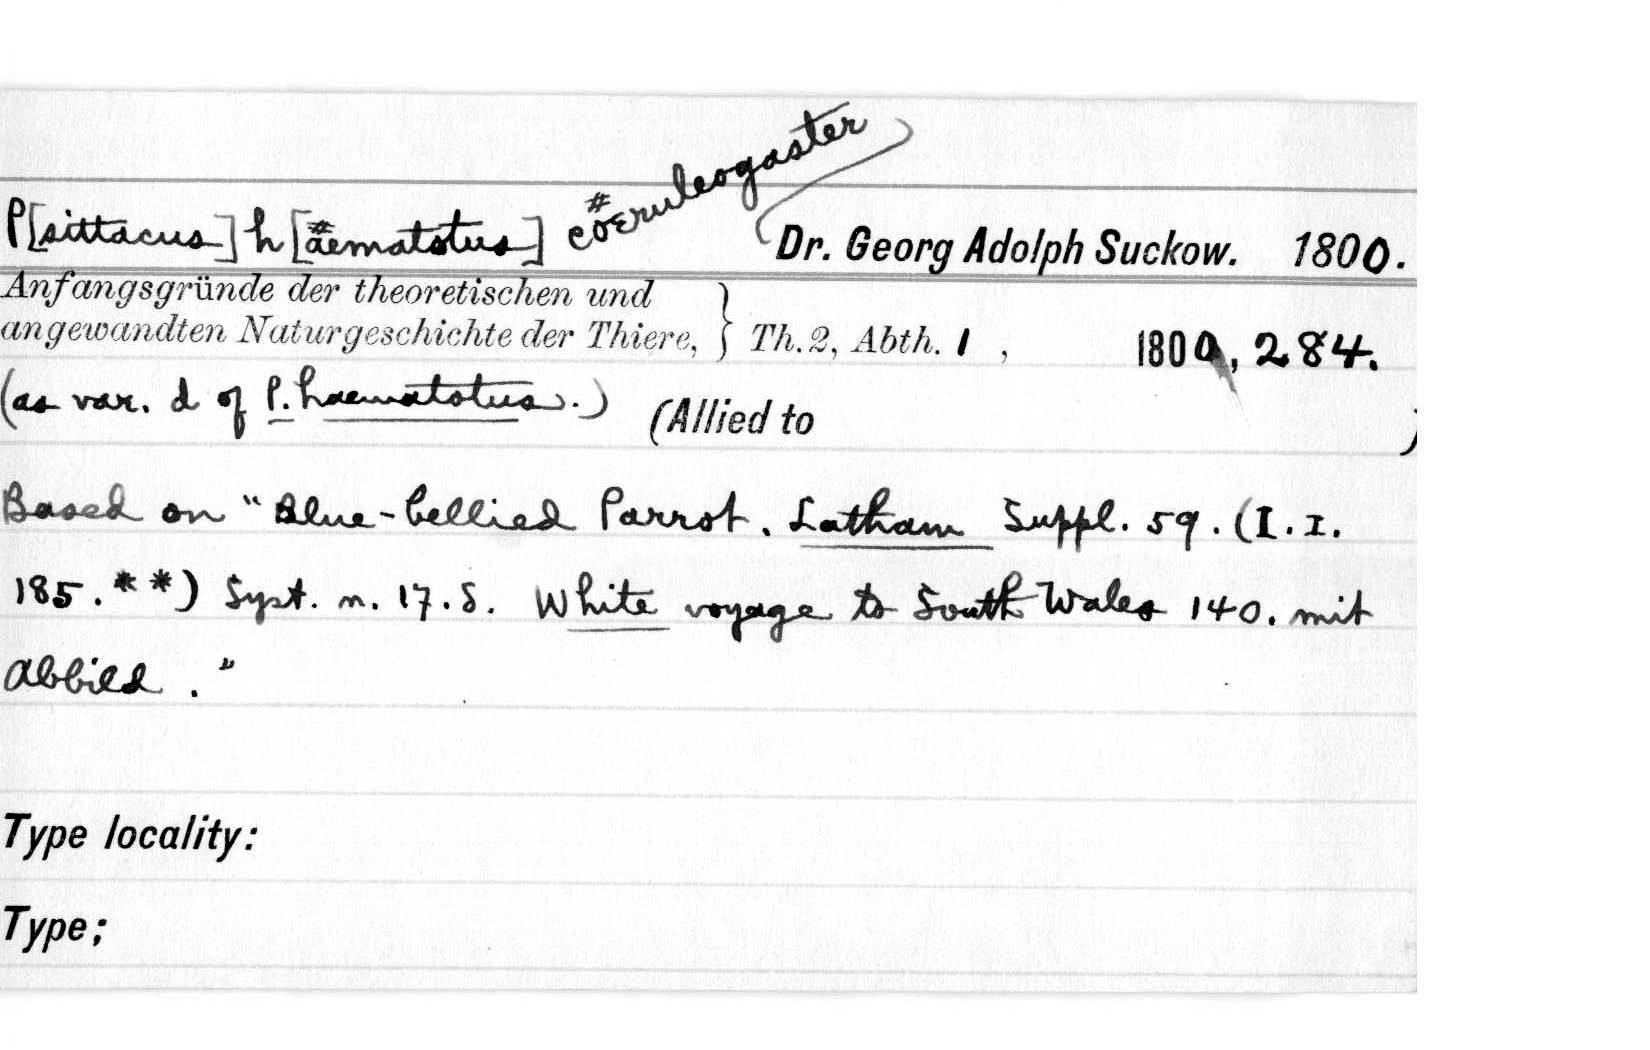 P[sittacus] h[äematotus] cöeruleogaster Dr. Georg Adolph Suckow. 1800.
Anfangsgründe der theoretischen und
angewandten Naturgeschichte der Thiere, } Th. 2, Abth. 1 , 1800, 284.
(as var. d of P. haematotus.) (Allied to )
Based on "Blue-bellied Parrot. Latham Suppl. 59. (I. I.
185. * *) Syst. n. 17. δ. White voyage to South Wales 140. mit
Abbild."
Type locality:
Type;